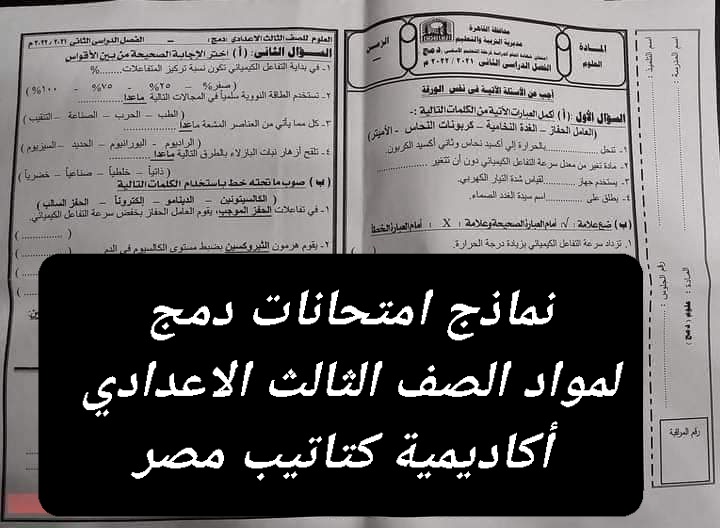 محافظة القاهرة
مديرية التربية والتعليم
الفصل الدراسى الثانى ٢٠٢١ / ٢٠٢٢ م
المادة
العلوم
الزمن
اسم المدرسة :
اسم التلميذ :
أجب عن الأسئلة الآتية فى نفس الورقة
السؤال الأول : ( أ ) أكمل العبارات الآتية من الكلمات التالية :-
(العامل الحفاز - الغدة النخامية - كربونات النحاس - الأميتر)
١- تنحل .......... بالحرارة إلي أكسيد نحاس وثاني أكسيد الكربون.
٢- مادة تغير من معدل سرعة التفاعل الكيميائي دون أن تتغير ..........
٣- يستخدم جهاز .......... لقياس شدة التيار الكهربي.
٤- يطلق على .......... اسم سيدة الغدد الصماء.
(ب) ضع علامة : √ : أمام العبارة الصحيحة وعلامة : X : أمام العبارة الخطأ
١. تزداد سرعة التفاعل الكيميائي بزيادة درجة الحرارة.
المادة : علوم ( دمج )
رقم الجلوس :
رقم المراقبة
العلوم للصف الثالث الاعدادي (دمج) ـ الفصل الدراسى الثانى ٢٠٢١ / ٢٠٢٢ م
السؤال الثانى : ( أ ) اختر الإجابة الصحيحة من بين الأقواس
١- في بداية التفاعل الكيميائي تكون نسبة تركيز المتفاعلات ..........%
( صفر% - ٢٥% - ٧٥% - ١٠٠% )
٢- تستخدم الطاقة النووية سلمياً في المجالات التالية ماعدا ..........
( الطب - الحرب - الصناعة - التنقيب )
٣- كل مما يأتي من العناصر المشعة ماعدا ..........
( الراديوم - اليورانيوم - الحديد - السيزيوم )
٤- تلقح أزهار نبات البازلاء بالطرق التالية ماعدا ..........
( ذاتياً - خلطياً - صناعياً - خضرياً )
( ب ) صوب ما تحته خط باستخدام الكلمات التالية
( الكالسيتونين - الدينامو - إلكتروناً - الحفز السالب )
١- في تفاعلات الحفز الموجب، يقوم العامل الحفاز بخفض سرعة التفاعل الكيميائي.
( .......... )
٢- يقوم هرمون الثيروكسين بضبط مستوى الكالسيوم في الدم
نماذج امتحانات دمج
لمواد الصف الثالث الاعدادي
أكاديمية كتاتيب مصر